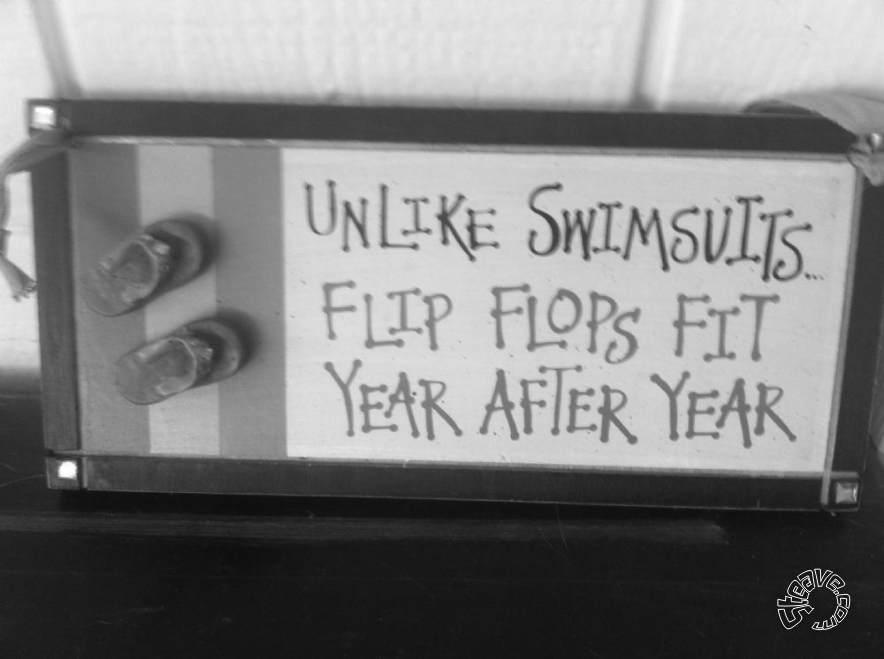 UNLIKE SWIMSUITS...
FLIP FLOPS FIT
YEAR AFTER YEAR
Steave.com